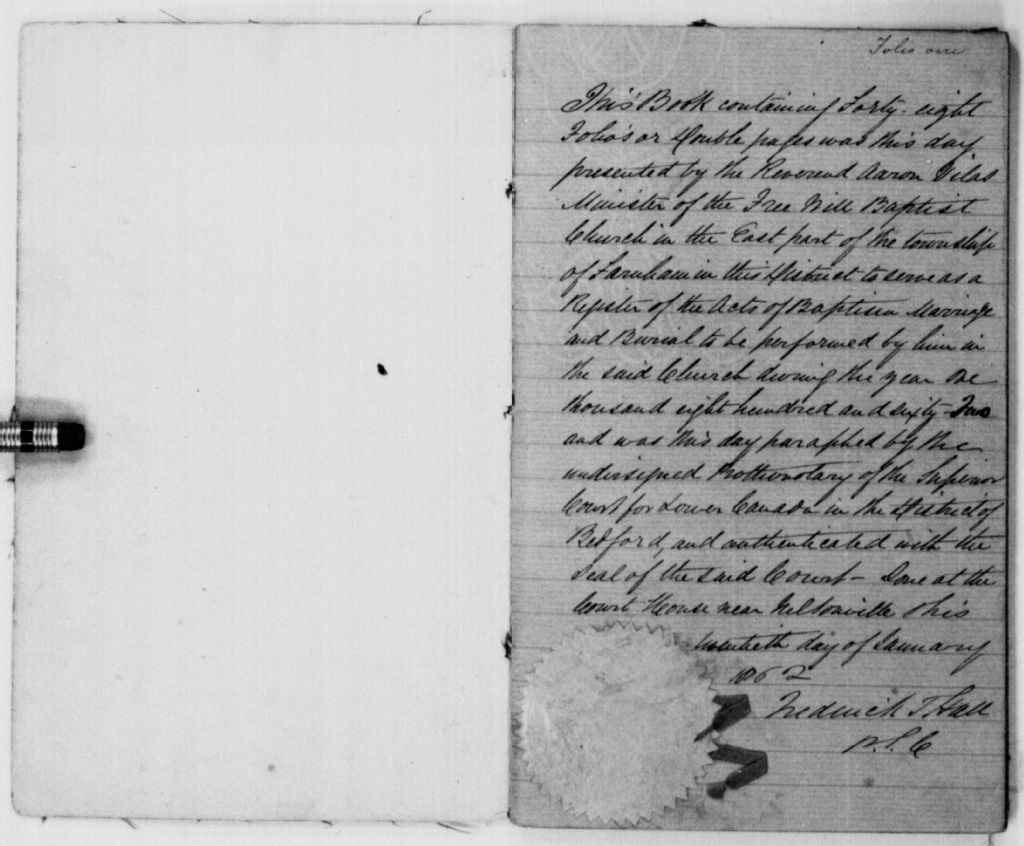 Folio one
This Book containing Forty-eight
Folio's or double pages was this day
presented by the Reverend Aaron Vilas
Minister of the Free Will Baptist
Church in the East part of the township
of Farnham in this District to serve as a
Register of the Acts of Baptism Marriage
and Burial to be performed by him in
the said Church during the year One
thousand eight hundred and sixty-Two
and was this day paraphed by the
undersigned Prothonotary of the Superior
Court for Lower Canada in the District of
Bedford, and authenticated with the
Seal of the said Court - Done at the
Court House near Nelsonville this
twentieth day of January
1862
Frederick T Hall
P.S.C